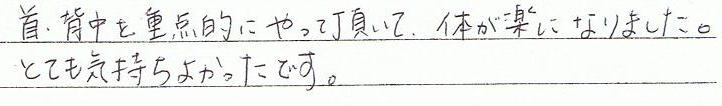 首、背中を重点的にやって頂いて、体が楽になりました。
とても気持ちよかったです。